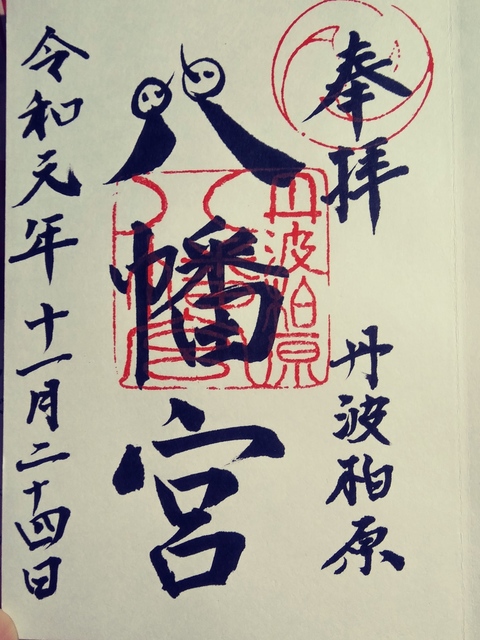 奉拝
丹波柏原
八幡宮
丹波柏原
八幡宮
令和元年十一月二十四日